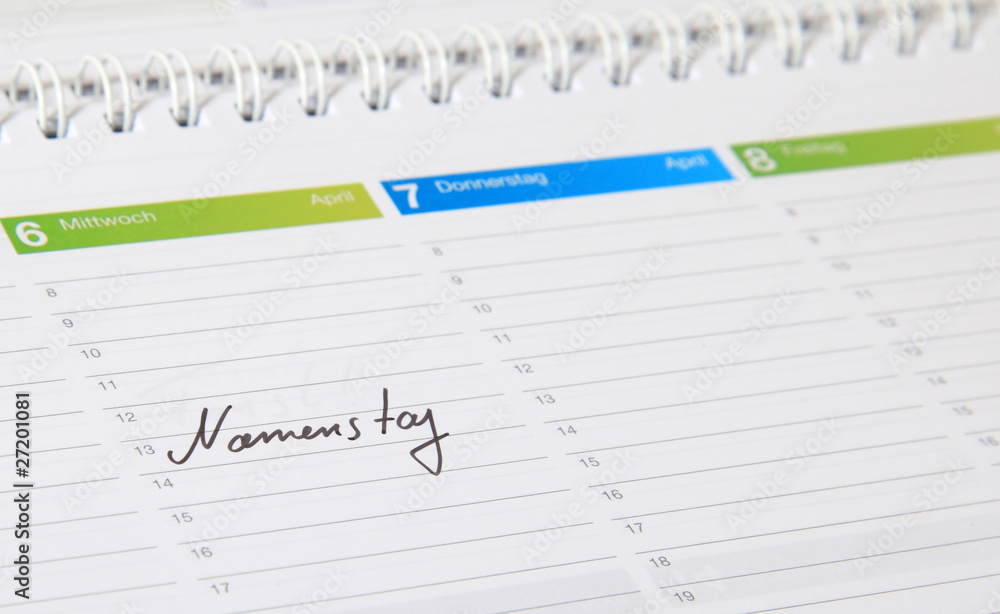 6 Mittwoch April
7 Donnerstag April
8 Freitag
8
9
10
11
12
13 Namenstag
14
15
16
17
8
9
10
11
12
13
14
15
16
17
18
19
8
9
10
11
12
13
14
15
16
Adobe Stock | #27201081